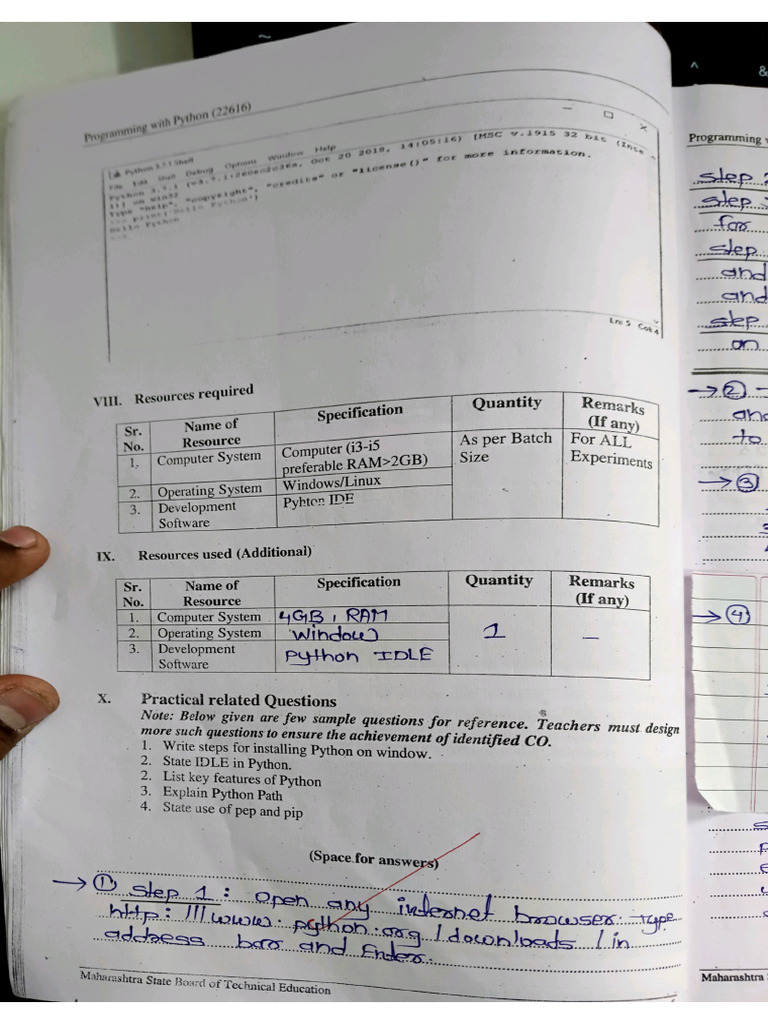 Programming with Python (22616)
Python 3.7.1 Shell
File Edit Shell Debug Options Window Help
Python 3.7.1 Oct 20 2018, 14:05:16) [MSC v.1915 32 bit (Inte
on win32
Type "help", "copyright", "credits" or "license()" for more information.
>>> print('Hello Python')
Hello Python
>>>
Ln: 5 Col: 4
VIII. Resources required
Sr. No. Name of Resource Specification Quantity Remarks (If any)
1. Computer System Computer (i3-i5 preferable RAM>2GB) As per Batch Size For ALL Experiments
2. Operating System Windows/Linux
3. Development Software Pyhton IDE
IX. Resources used (Additional)
Sr. No. Name of Resource Specification Quantity Remarks (If any)
1. Computer System 4GB, RAM
2. Operating System Window 1 —
3. Development Software Python IDLE
X. Practical related Questions
Note: Below given are few sample questions for reference. Teachers must design
more such questions to ensure the achievement of identified CO.
1. Write steps for installing Python on window.
2. State IDLE in Python.
2. List key features of Python
3. Explain Python Path
4. State use of pep and pip
(Space for answers)
→ ① Step 1 : Open any internet browser. Type
http:///www.python.org/downloads/in
address bar and Enter.
Maharashtra State Board of Technical Education
Programming
step
step
for
step
and
and
step
on
→ ② -
and
to
→ ③
→ ④
Maharashtra